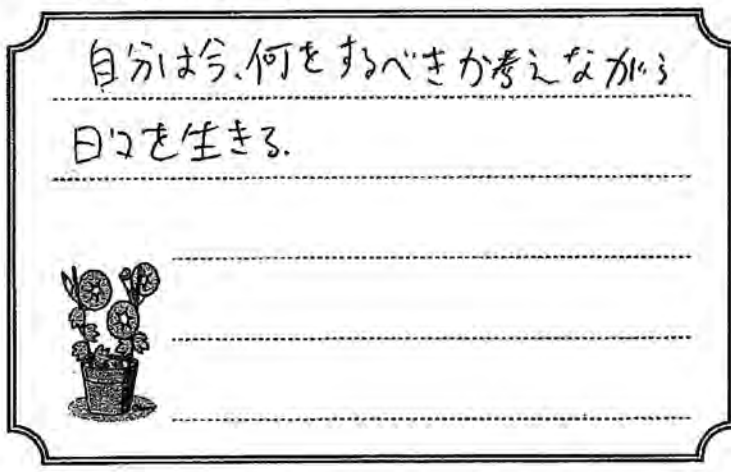 自分は今、何をするべきか考えながら
日々を生きる.